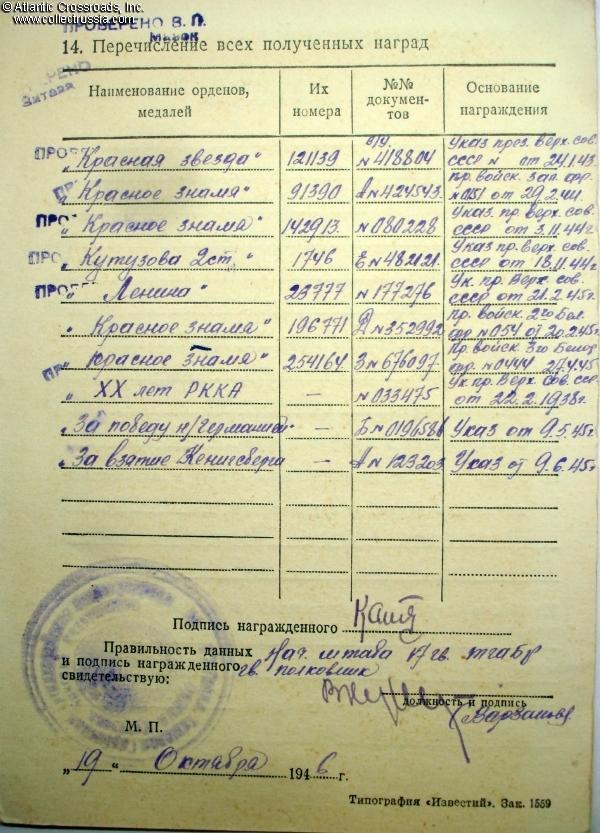 © Atlantic Crossroads, Inc.
www.collectrussia.com
ПРОВЕРЕНО В. П.
14. Перечисление всех полученных наград
Наименование орденов, медалей Их номера №№ документов Основание награждения
„Красная звезда“ 121139 с/у. № 418804 Указ през. Верх. сов. СССР от 24.1.43
„Красное знамя“ 91390 А № 424543 Пр. войск. зап. фр. №051 от 29.2.44.
„Красное знамя“ 142913 № 080228 Указ. пр. верх. сов. СССР от 3.11.44г
„Кутузова 2 ст.“ 1746 Е № 482121 Указ пр. верх. сов. СССР от 18.11.44г
„Ленина“ 23777 № 177276 Ук. пр. Верх. сов. СССР от 21.2.45г
„Красное знамя“ 196771 Д № 352992 Пр. войск. 2го Бел. фр. №054 от 20.2.45г
„Красное знамя“ 254164 З № 676097 Пр. войск. 3го Белор. фр. №0444 27.4.45
„ХХ лет РККА – № 033475 Ук. пр. Верх. Сов. ССР от 22.2.1938г.
„За победу н/Германией“ – Б № 0196586 Указ от 9.5.45г
„За взятие Кенигсберга – А № 123203 Указ от 9.6.45г
Подпись награжденного
Правильность данных
и подпись награжденного
свидетельствую:
Нач. штаба 17 гв.
гв. полковник
должность и подпись
М. П.
„19“ Октября 1946 г.
Типография «Известий». Зак. 1559